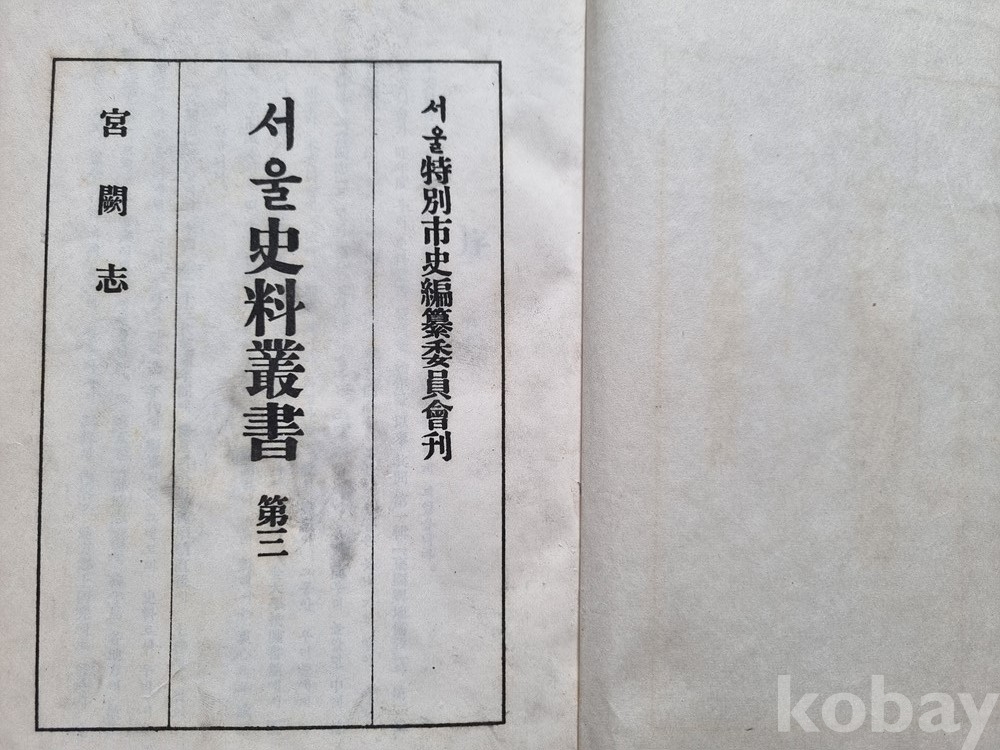 서울特別市史編纂委員會刊
서울史料叢書 第三
宮闕志
kobay